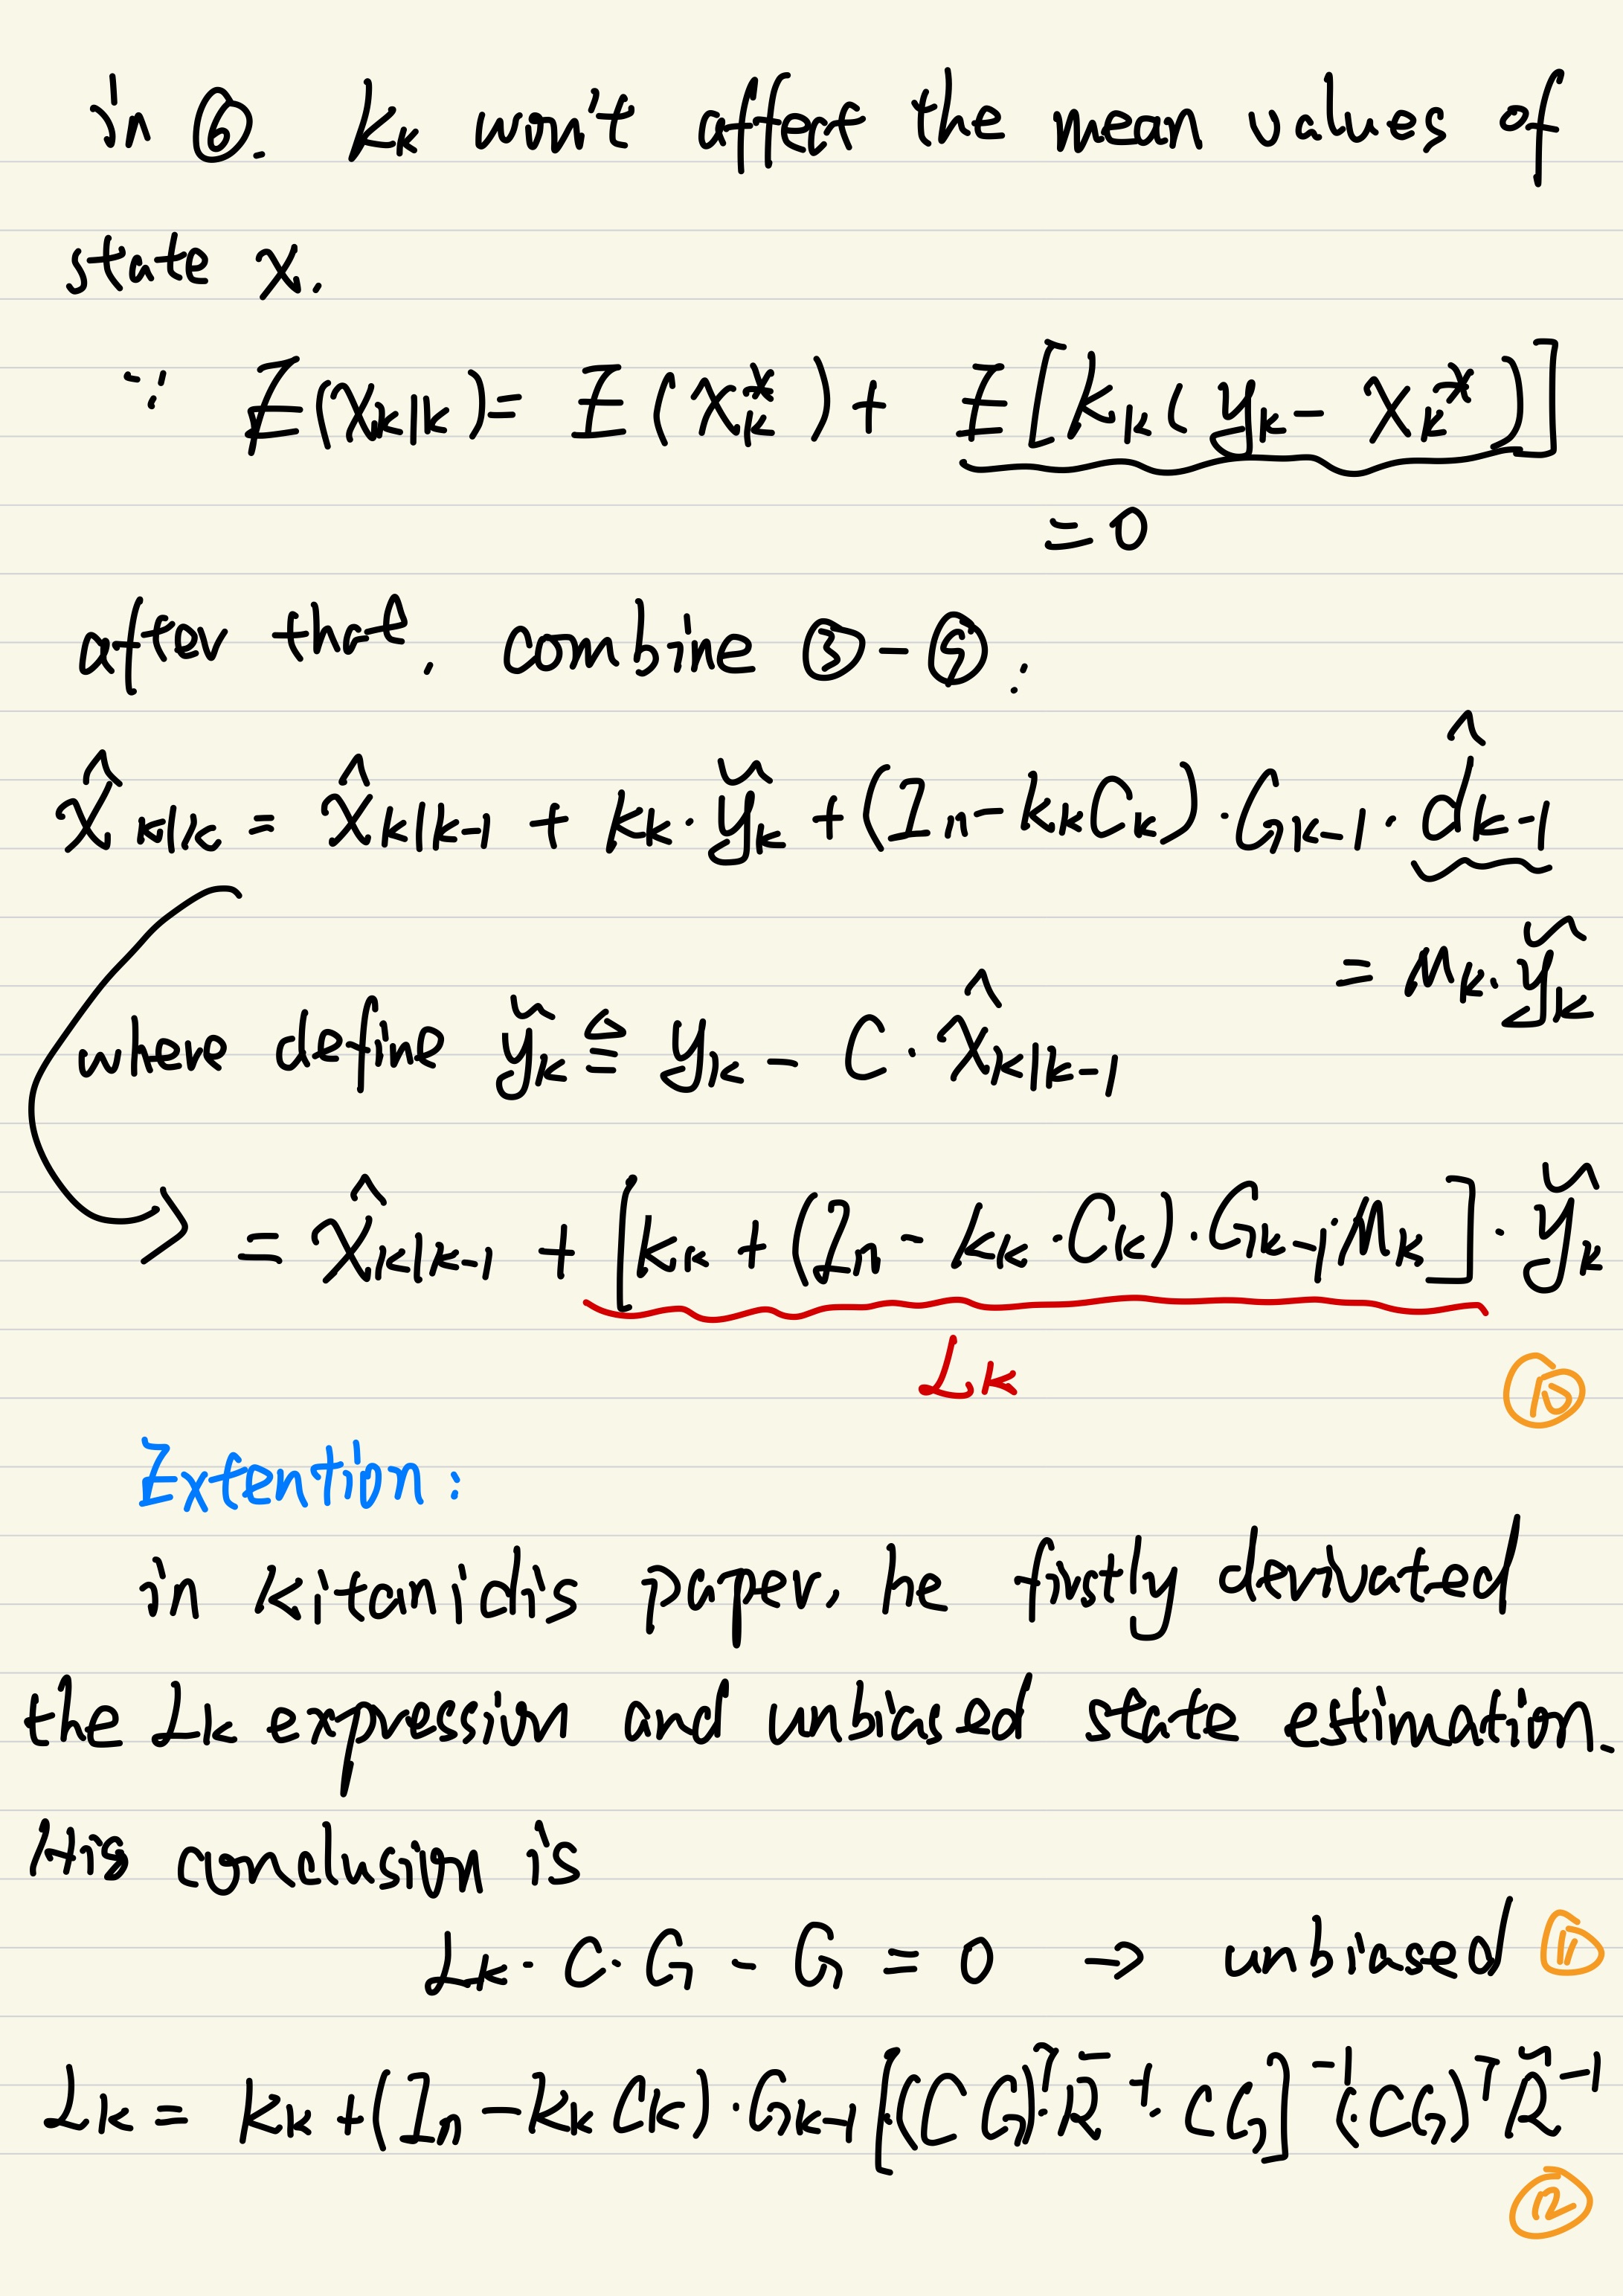 in ⑥. Kk won't affect the mean values of
state x.
∵ E(x̂k|k) = E(xk*) + E[Kk(yk - xk*)]
= 0
after that, combine ③-⑤:
x̂k|k = x̂k|k-1 + Kk·ỹk + (In - KkCk)·Gk-1·d̂k-1
= Mk·ỹk
where define ỹk ≜ yk - C·x̂k|k-1
= x̂k|k-1 + [Kk + (In - Kk·Ck)·Gk-1·Mk]·ỹk
Lk
⑩
Extention:
in Kitanidis paper, he firstly derivated
the Lk expression and unbiased state estimation.
His conclusion is
Lk·C·G - G = 0 → unbiased ⑪
Lk = Kk + (In - KkCk)·Gk-1[(CG)ᵀ·R̃⁻¹·CG]⁻¹·(CG)ᵀR̃⁻¹
⑫